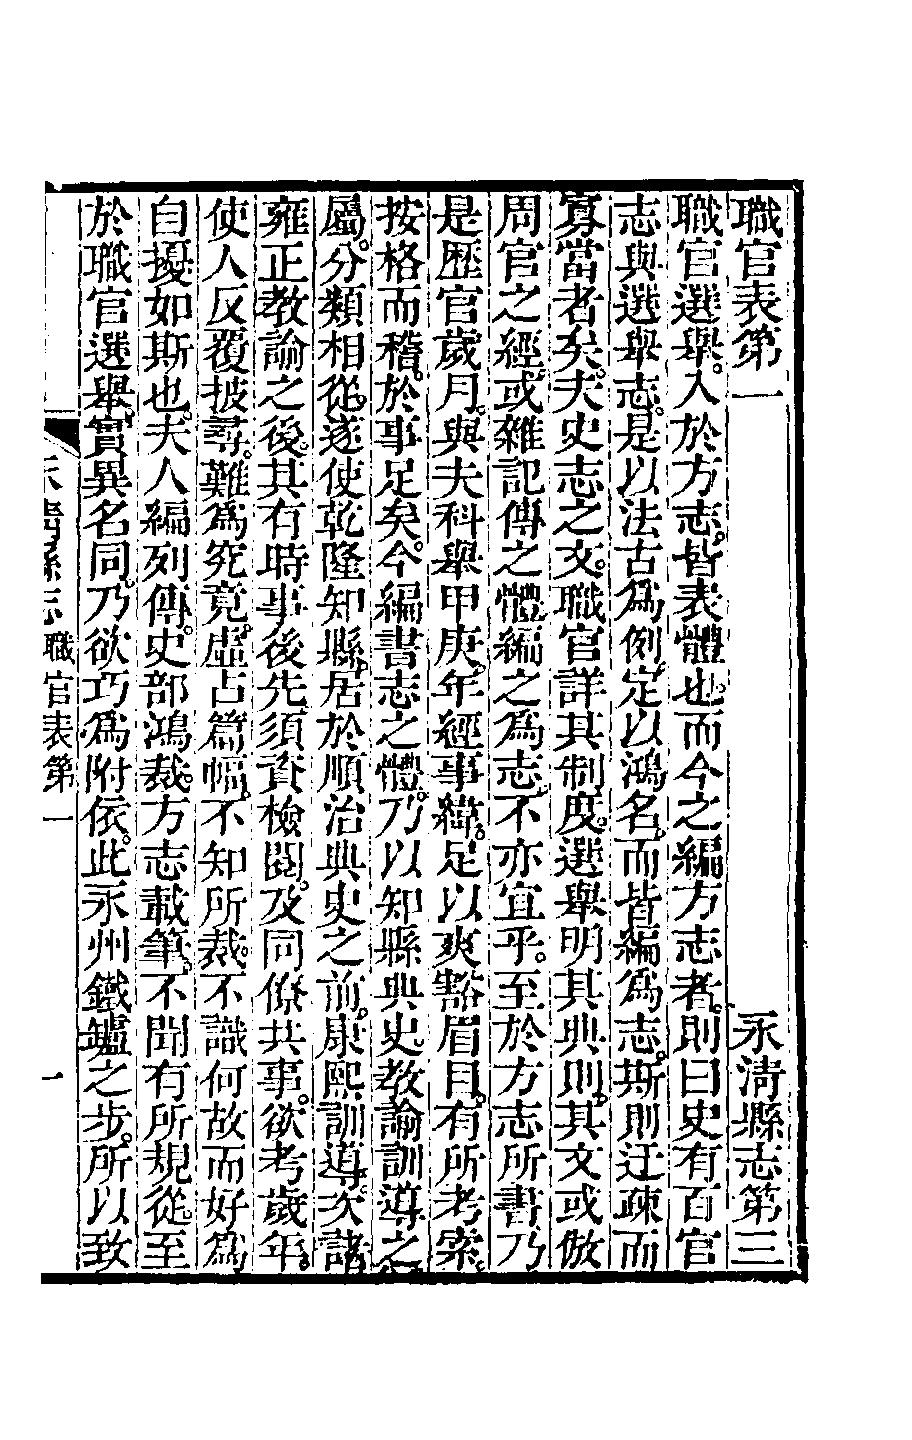 職官表第一　永清縣志第三
職官選舉。入於方志。皆表體也。而今之編方志者。則曰史有百官
志與選舉志。是以法古爲例。定以鴻名。而皆編爲志。斯則迂疎而
寡當者矣。夫史志之文。職官詳其制度。選舉明其典則。其文或倣
周官之經。或雜記傳之體。編之爲志。不亦宜乎。至於方志所書。乃
是歷官歲月。與夫科舉甲庚。年經事緯。足以爽豁眉目。有所考索。
按格而稽。於事足矣。今編書志之體。乃以知縣典史教諭訓導之
屬。分類相從。遂使乾隆知縣。居於順治典史之前。康熙訓導。次諸
雍正教諭之後。其有時事後先。須資檢閱。及同僚共事。欲考歲年。
使人反覆披尋。難爲究竟。虛占篇幅。不知所裁。不識何故而好爲
自擾如斯也。夫人編列傳。史部鴻裁。方志載筆。不聞有所規從。至
於職官選舉。實異名同。乃欲巧爲附依。此永州鐵鑪之步。所以致
永清縣志　職官表第一　一